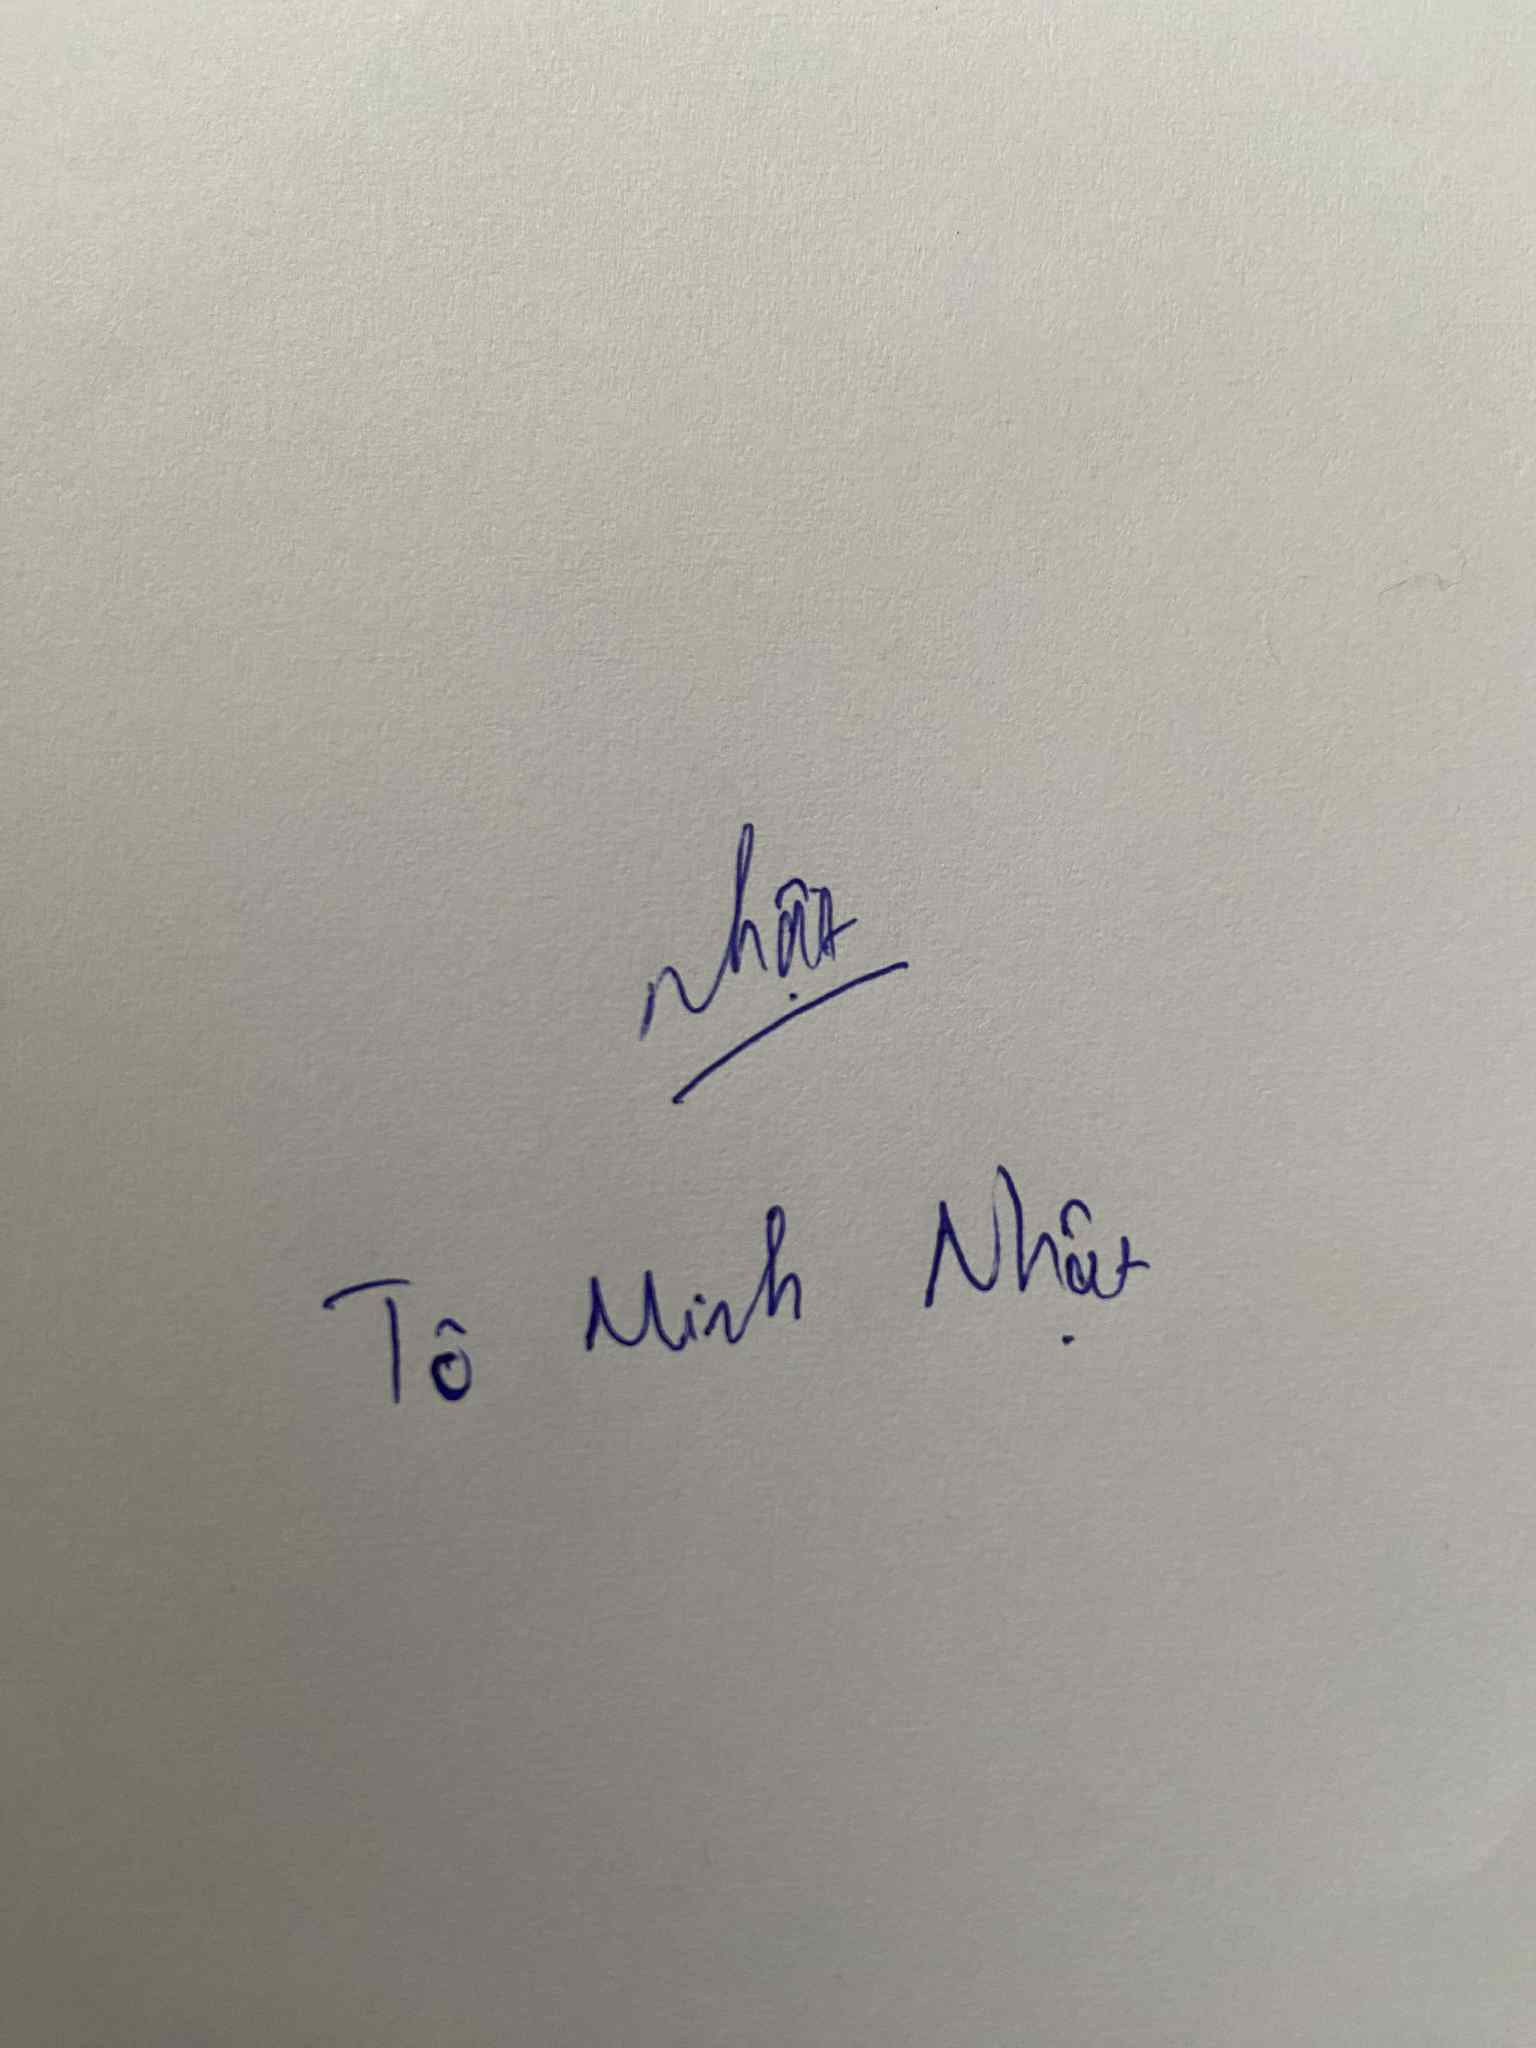 Nhật
Tô Minh Nhật